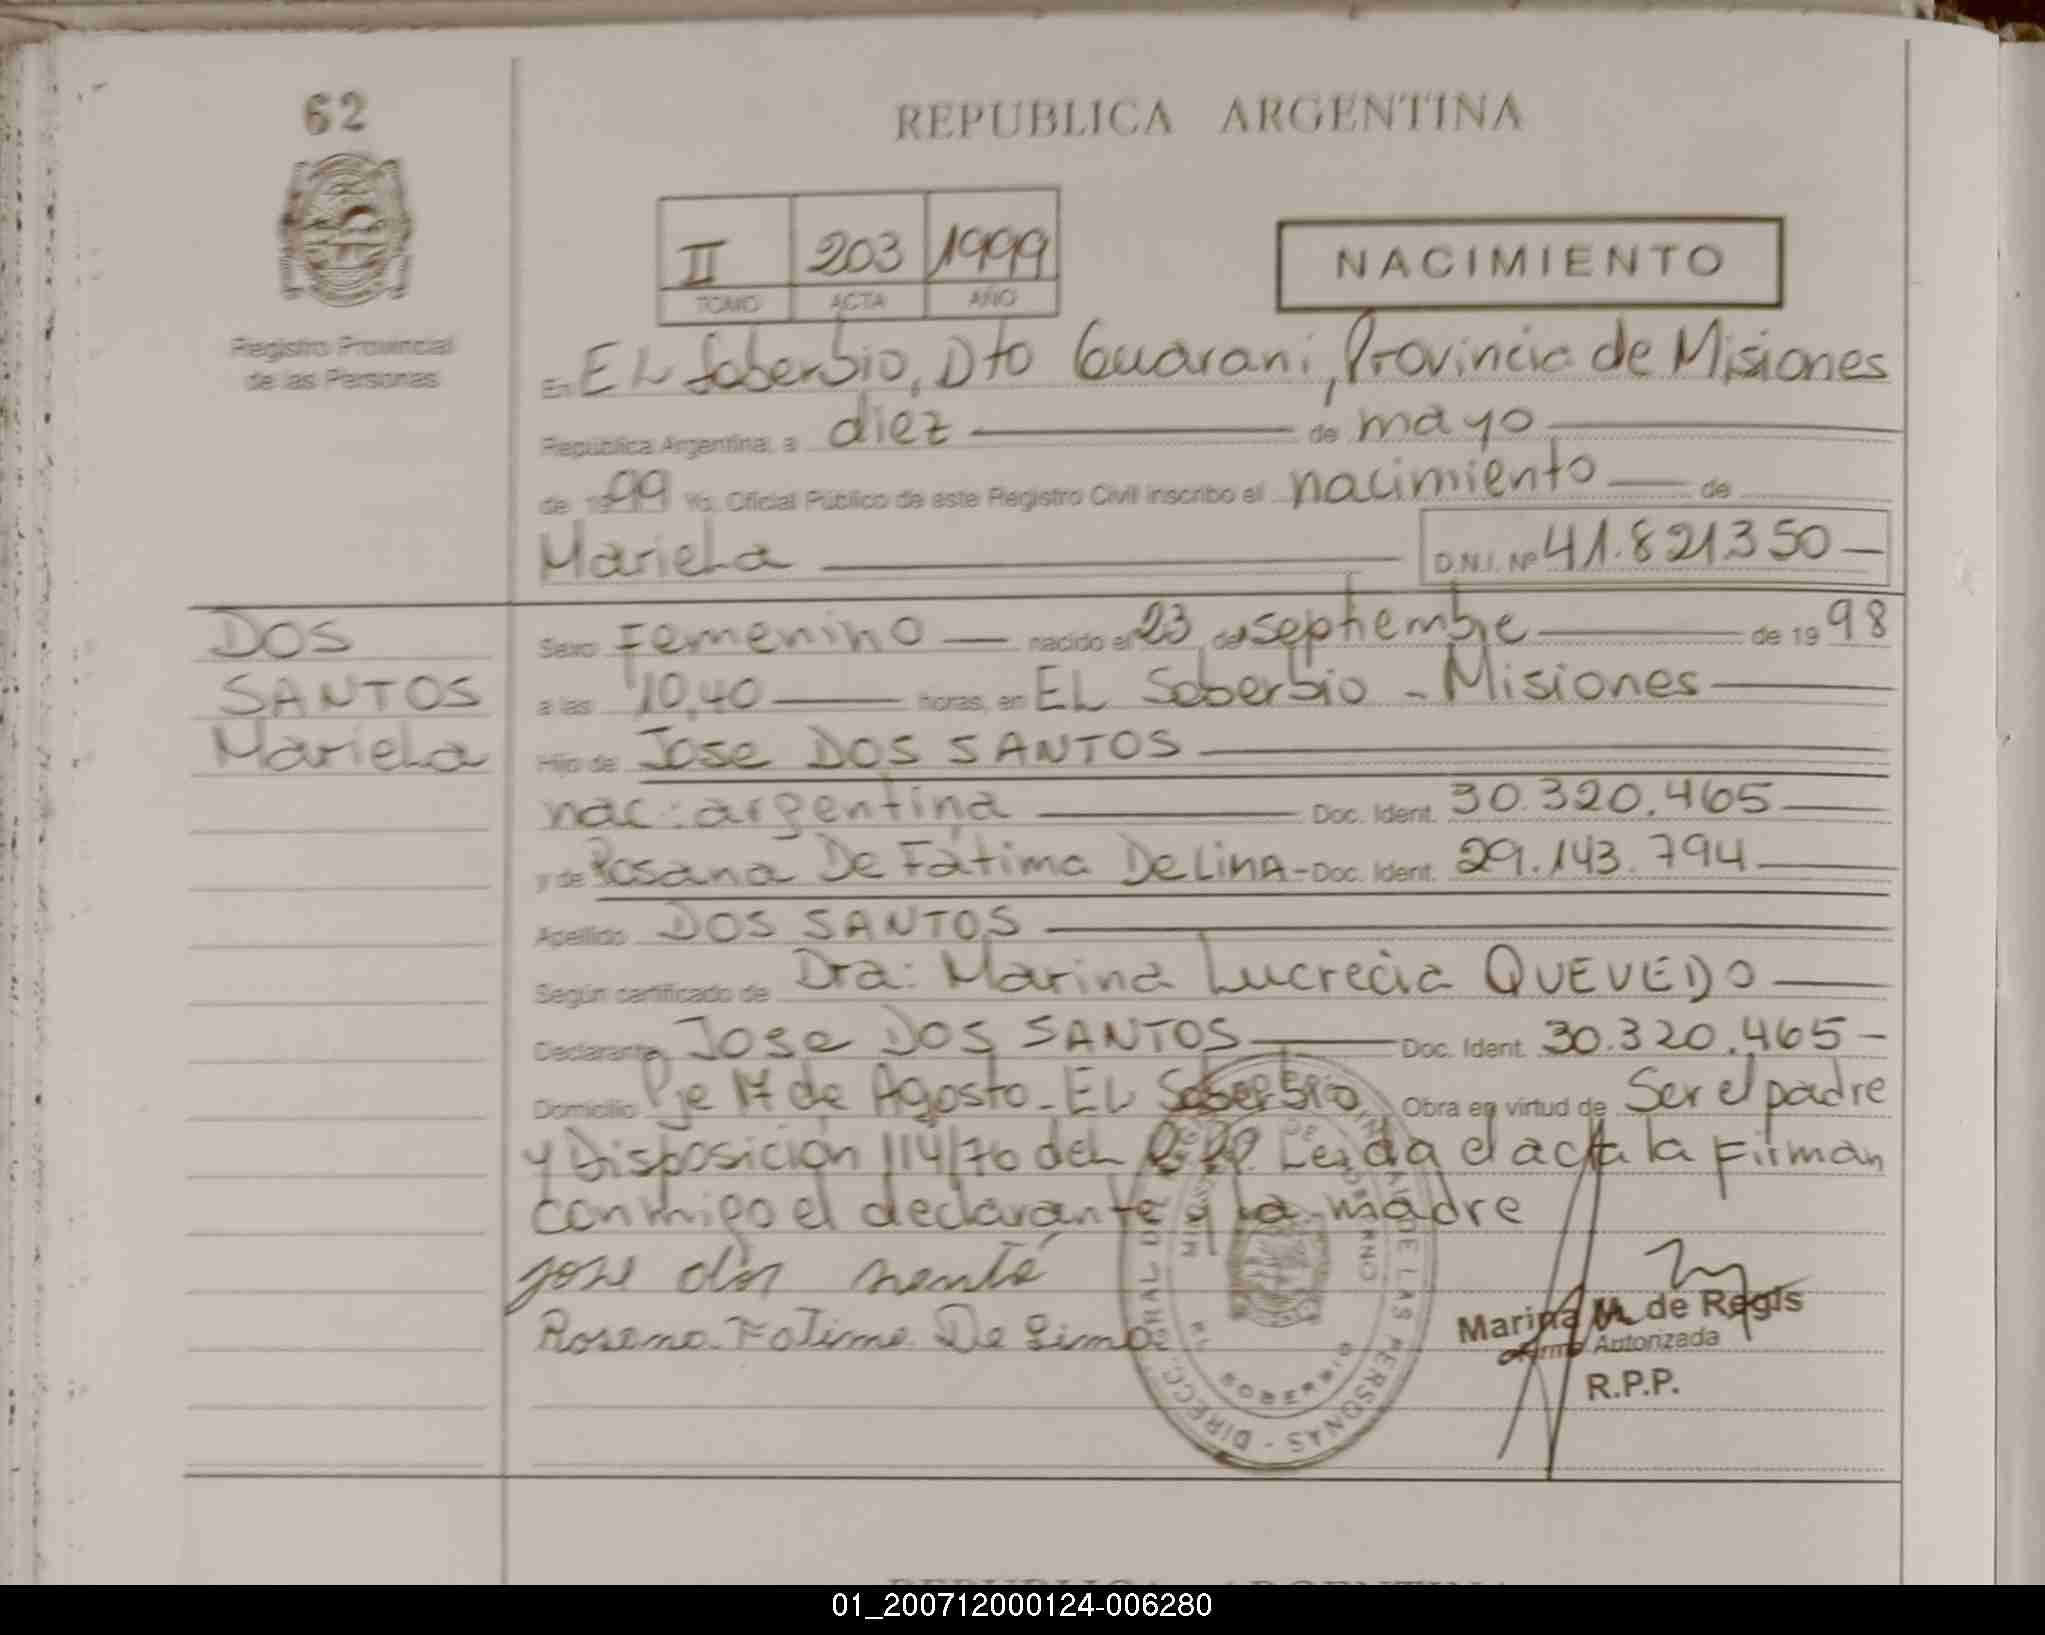 62
REPUBLICA ARGENTINA
II 203 1999
TOMO ACTA AÑO
NACIMIENTO
Registro Provincial
de las Personas
En EL Soberbio, Dto Guarani, Provincia de Misiones
República Argentina, a diez de mayo
de 1999 Yo, Oficial Público de este Registro Civil inscribo el nacimiento de
Mariela D.N.I. Nº 41.821.350
DOS
SANTOS
Mariela
Sexo Femenino nacido el 23 de septiembre de 1998
a las 10,40 horas, en EL Soberbio - Misiones
Hijo de Jose DOS SANTOS
nac: argentina Doc. Ident. 30.320.465
y de Rosana De Fátima De LimA - Doc. Ident. 29.143.794
Apellido DOS SANTOS
Según certificado de Dra: Marina Lucrecia QUEVEDO
Declarante Jose DOS SANTOS Doc. Ident. 30.320.465
Domicilio Pje 17 de Agosto - EL Soberbio Obra en virtud de Ser el padre
y Disposición 114/76 del R.P.P. Leida el acta la firman
conmigo el declarante y la madre
jose dos
Rosana Fatima De Lima
Marina M. de Regis
Firma Autorizada
R.P.P.
DE LAS PERSONAS - DIRECC.
SOBERBIO
01_200712000124-006280